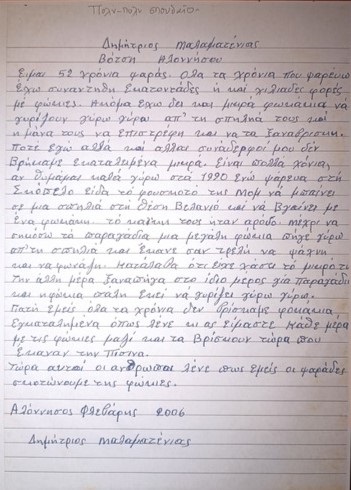 Πολύ-πολύ σπουδαίο
Δημήτριος Μαλαματένιας
Βότση Αλοννήσου
Είμαι 52 χρόνια ψαράς. Όλα τα χρόνια που ψαρεύω
έχω συναντήση Εκατοντάδες ή και χιλιάδες φορές
με φώκιες. Ακόμα έχω δει και μικρά φωκάκια να
γυρίζουν γύρω γύρω απ' τη σπηλιά τους και
η μάνα τους να Επιστρέφη και να τα ξαναβρίσκη.
Ποτέ εγώ αλλά και άλλοι συνάδερφοί μου δεν
Βρήκαμε εγκαταλημένα μικρά. Είναι πολλά χρόνια,
αν θυμάμαι καλά γύρω στα 1990 Ενώ ψάρευα στη
Σκόπελο είδα το φουσκοτό της Μομ να μπαίνει
σε μια σπηλιά στη θέση Βελανιό και να βγαίνει με
ένα φωκάκι. το καΐκι τους ήταν αρόδο. Μέχρι να
σηκόσω τα παραγάδια μια μεγάλη φώκια πήγε γύρω
απ'τη σπηλιά και έκανε σαν τρελή να ψάχνη
και να φωνάζη. Κατάλαβα ότι είχε χάσει το μικρό της
την άλλη μέρα ξαναπήγα στο ίδιο μέρος για παραγάδια
και η φώκια πάλη Εκεί να γυρίζει γύρω γύρω.
Γιατί εμείς όλα τα χρόνια δεν βρίσκαμε φωκάκια
Εγκαταλημένα όπως λένε κι ας είμαστε κάθε μέρα
με τις φώκιες μαζί και τα βρίσκουν τώρα που
έκαναν την Πισίνα.
Τώρα αυτοί οι ανθρωποι λένε πως εμείς οι ψαράδες
σκοτώνουμε της φώκιες.
Αλόννησος Φλεβάρης 2006
Δημήτριος Μαλαματένιας